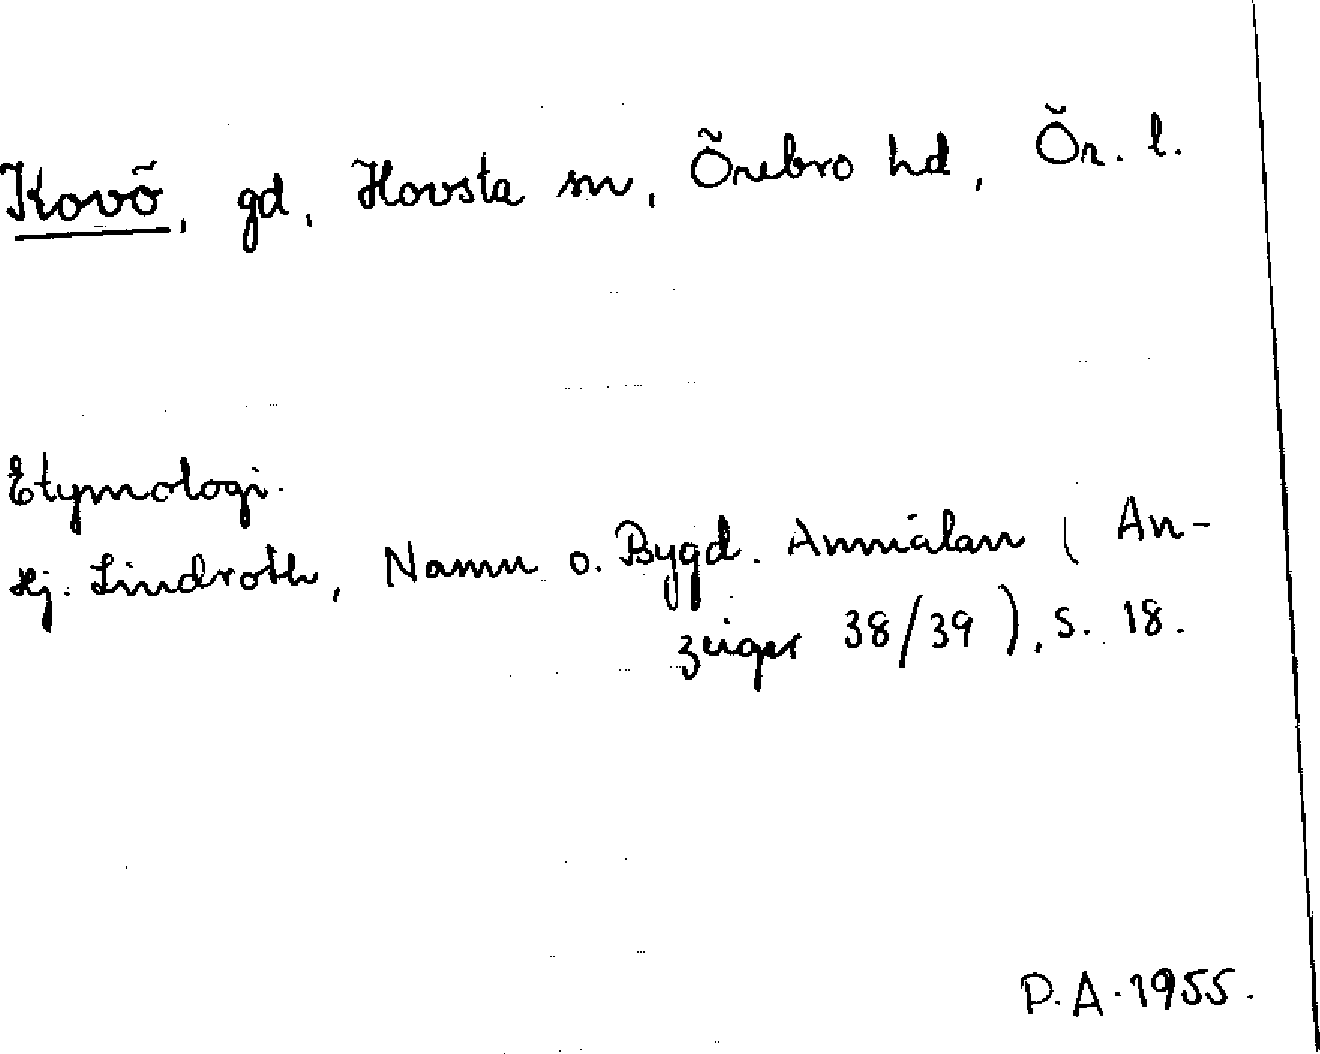 Kovö, gd, Hovsta sn, Örebro hd, Ör. l.
Etymologi.
Hj. Lindroth, Namn o. Bygd. Anmälan ( An-
zeiger 38/39 ), s. 18.
P.A. 1955.